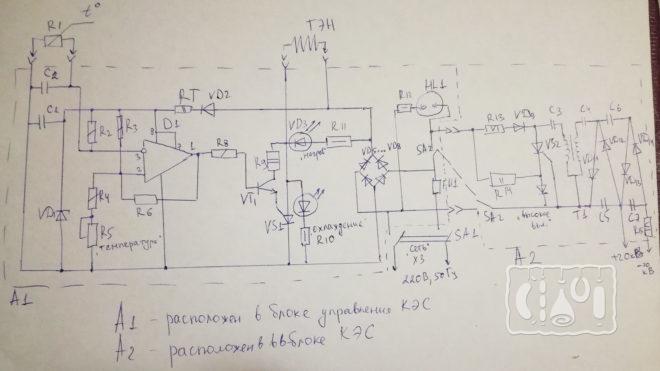 t°
R1
ТЭН
C2
C1
R2
R3
RT
VD2
D1
R8
R4
R5
"температура"
R6
VD1
R9
VD3
"нагрев"
R11
VT1
VS1
"охлаждение"
R10
R12
HL1
VD5...VD8
FU1
SA2
SA1
"сеть"
X3
220В, 50Гц
R13
VD9
C3
C4
C6
R14
VS2
SA2
T1
C5
C7
+20кВ
-20
кВ
A1
A2
A1 - расположен в блоке управления КЭС
A2 - расположен в ВВблоке КЭС